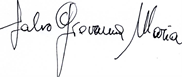 Salvo Giovanna Maria